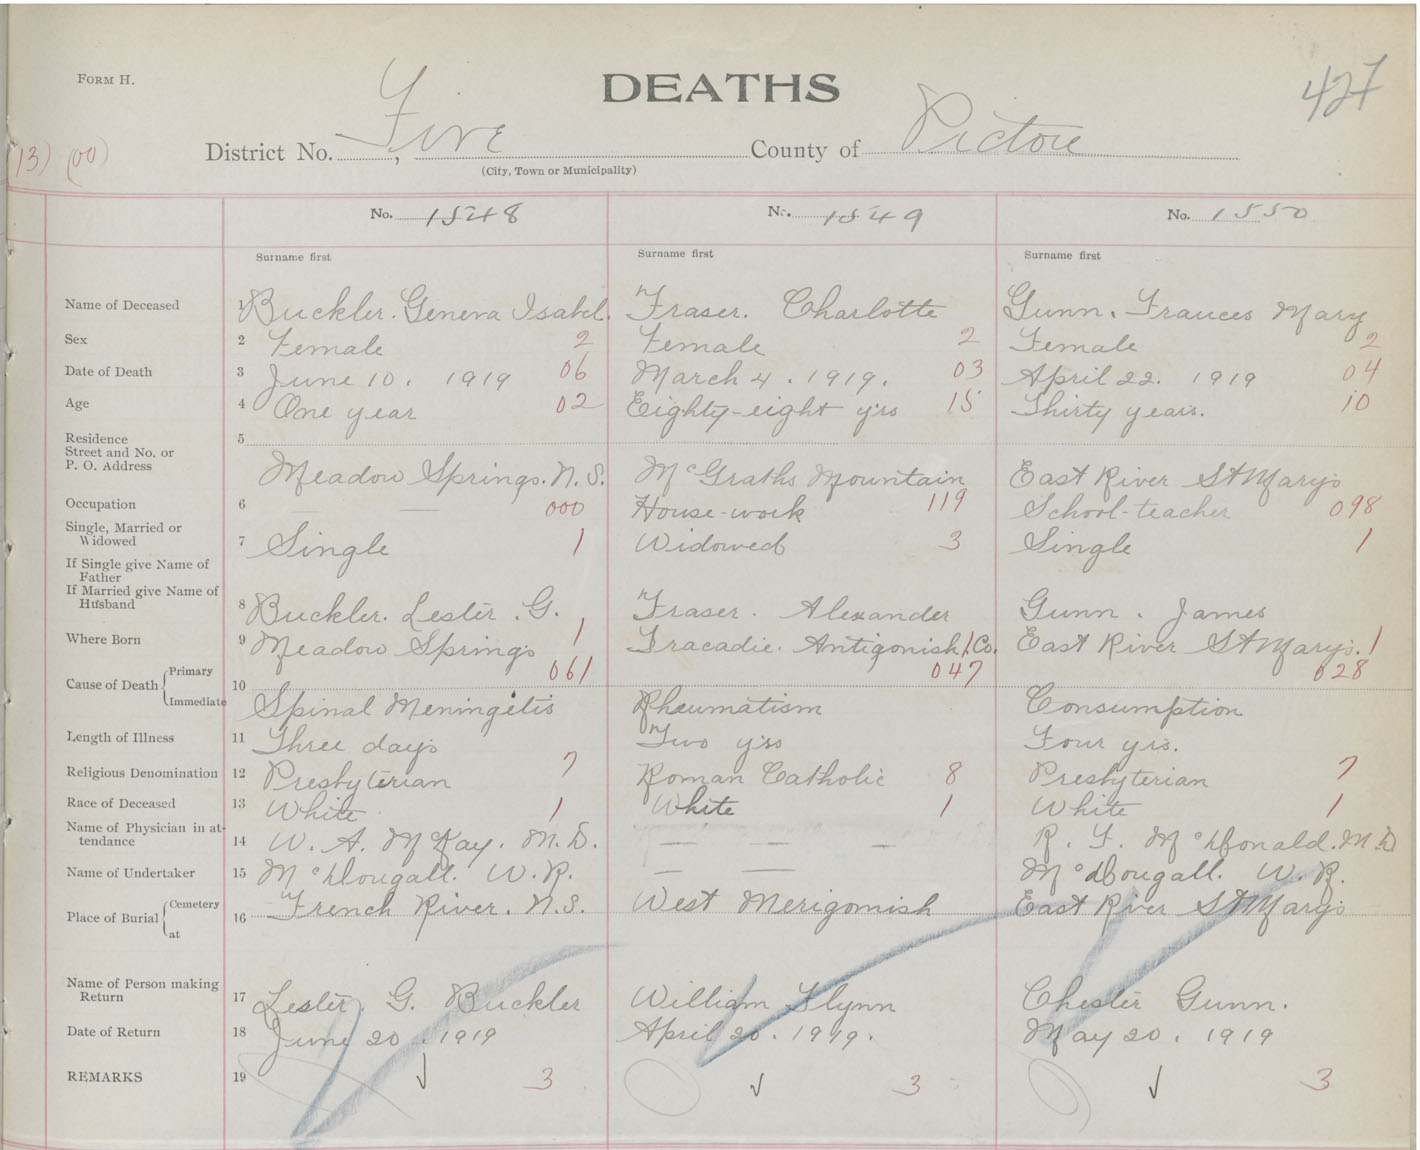 FORM H.
DEATHS
427
(13) (00)
District No. , Five County of Pictou
(City, Town or Municipality)
No. 1548 No. 1549 No. 1550
Surname first Surname first Surname first
Name of Deceased 1 Buckler. Geneva Isabel. Fraser. Charlotte Gunn. Frances Mary
Sex 2 Female 2 Female 2 Female 2
Date of Death 3 June 10. 1919 06 March 4. 1919. 03 April 22. 1919 04
Age 4 One year 02 Eighty-eight yrs 15 Thirty years. 10
Residence 5
Street and No. or
P. O. Address Meadow Springs. N. S. McGraths Mountain East River St Marys
Occupation 6 — — 000 House-work 119 School-teacher 098
Single, Married or
Widowed 7 Single 1 Widowed 3 Single 1
If Single give Name of
Father
If Married give Name of
Husband 8 Buckler. Lester. G. Fraser. Alexander Gunn. James
Where Born 9 Meadow Springs 1 Tracadie. Antigonish Co. 1 East River St Marys. 1
Cause of Death Primary 061 047 028
10
Immediate Spinal Meningitis Rheumatism Consumption
Length of Illness 11 Three days Two yrs Four yrs.
Religious Denomination 12 Presbyterian 7 Roman Catholic 8 Presbyterian 7
Race of Deceased 13 White 1 White 1 White 1
Name of Physician in at-
tendance 14 W. A. McKay. M. D. — — — R. F. McDonald. M. D
Name of Undertaker 15 McDougall. W. R. — — McDougall. W. R.
Place of Burial Cemetery 16 French River. N. S. West Merigomish East River St Marys
at
Name of Person making
Return 17 Lester. G. Buckler William Flynn Chester Gunn.
Date of Return 18 June 20. 1919 April 20. 1919. May 20. 1919
REMARKS 19 ✓ 3 ✓ 3 ✓ 3